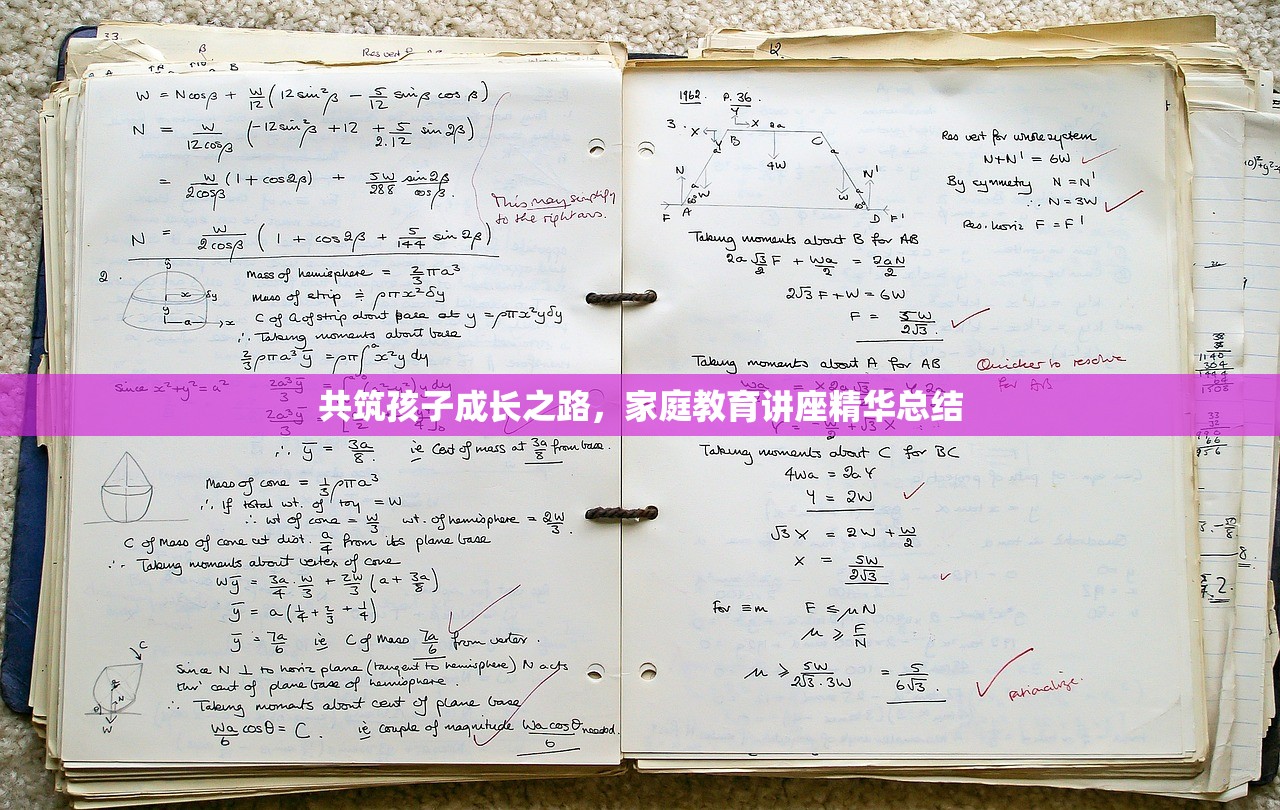 33.
Res vert
W = Ncosβ + W/12 (12 sin²β − 5/12 sinβ cosβ)
N = W/12cosβ (−12sin²β + 12 + 5/2.12 sin2β)
= W/2cosβ (1 + cos2β) + 5W/288 sin2β/cosβ.
This may simplify
to the right ans.
N = W/2cosβ (1 + cos2β + 5/144 sin2β)
2.
Mass of hemisphere = 2/3 πa³
mass of strip ≑ ρπx²δy
C of G of strip about base at y = ρπx²yδy
∴ Taking moments about base
2/3 ρπa³ȳ = ρπ∫x²y dy
Since x²+y²=a²
共筑孩子成长之路，家庭教育讲座精华总结
∴ ȳ = 3a/8 ie Cent of mass at 3a/8 from base.
Mass of cone = 1/3 ρπa³
∴ If total wt. of toy = W
∴ wt of cone = W/3 wt. of hemisphere = 2W/3.
C of Mass of cone at dist. a/4 from its plane base
∴ Taking moments about vertex of cone
Wȳ = 3a/4 . W/3 + 2W/3 (a + 3a/8)
ȳ = a(1/4 + 2/3 + 1/4)
ȳ = 7a/6 ie C of Mass 7a/6 from vertex.
Since N ⊥ to horiz plane (tangent to hemisphere) N acts
thro' cent of plane base of hemisphere.
∴ Taking moments about cent of plane base
Wa/6 cosθ = C. ie couple of magnitude Wa cosθ/6 needed.
1962. P. 36.
3.
Res vert for whole system
N+N' = 6W
By symmetry N = N'
∴ N = 3W
Res. horiz F = F'
Taking moments about B for AB
2a √3/2 F + Wa/2 = 2aN/2
2√3 F + W = 6W
F = 5W/2√3.
Taking moments about A for AB
Quicker to resolve
for AB
Taking moments about C for BC
4Wa = 2aY
Y = 2W
√3 X = 2W + W/2
X = 5W/2√3
For ≡m F ≤ μN
μ ≥ F/N
μ ≥ 5W/2√3.3W = 5/6√3.
rationalize.